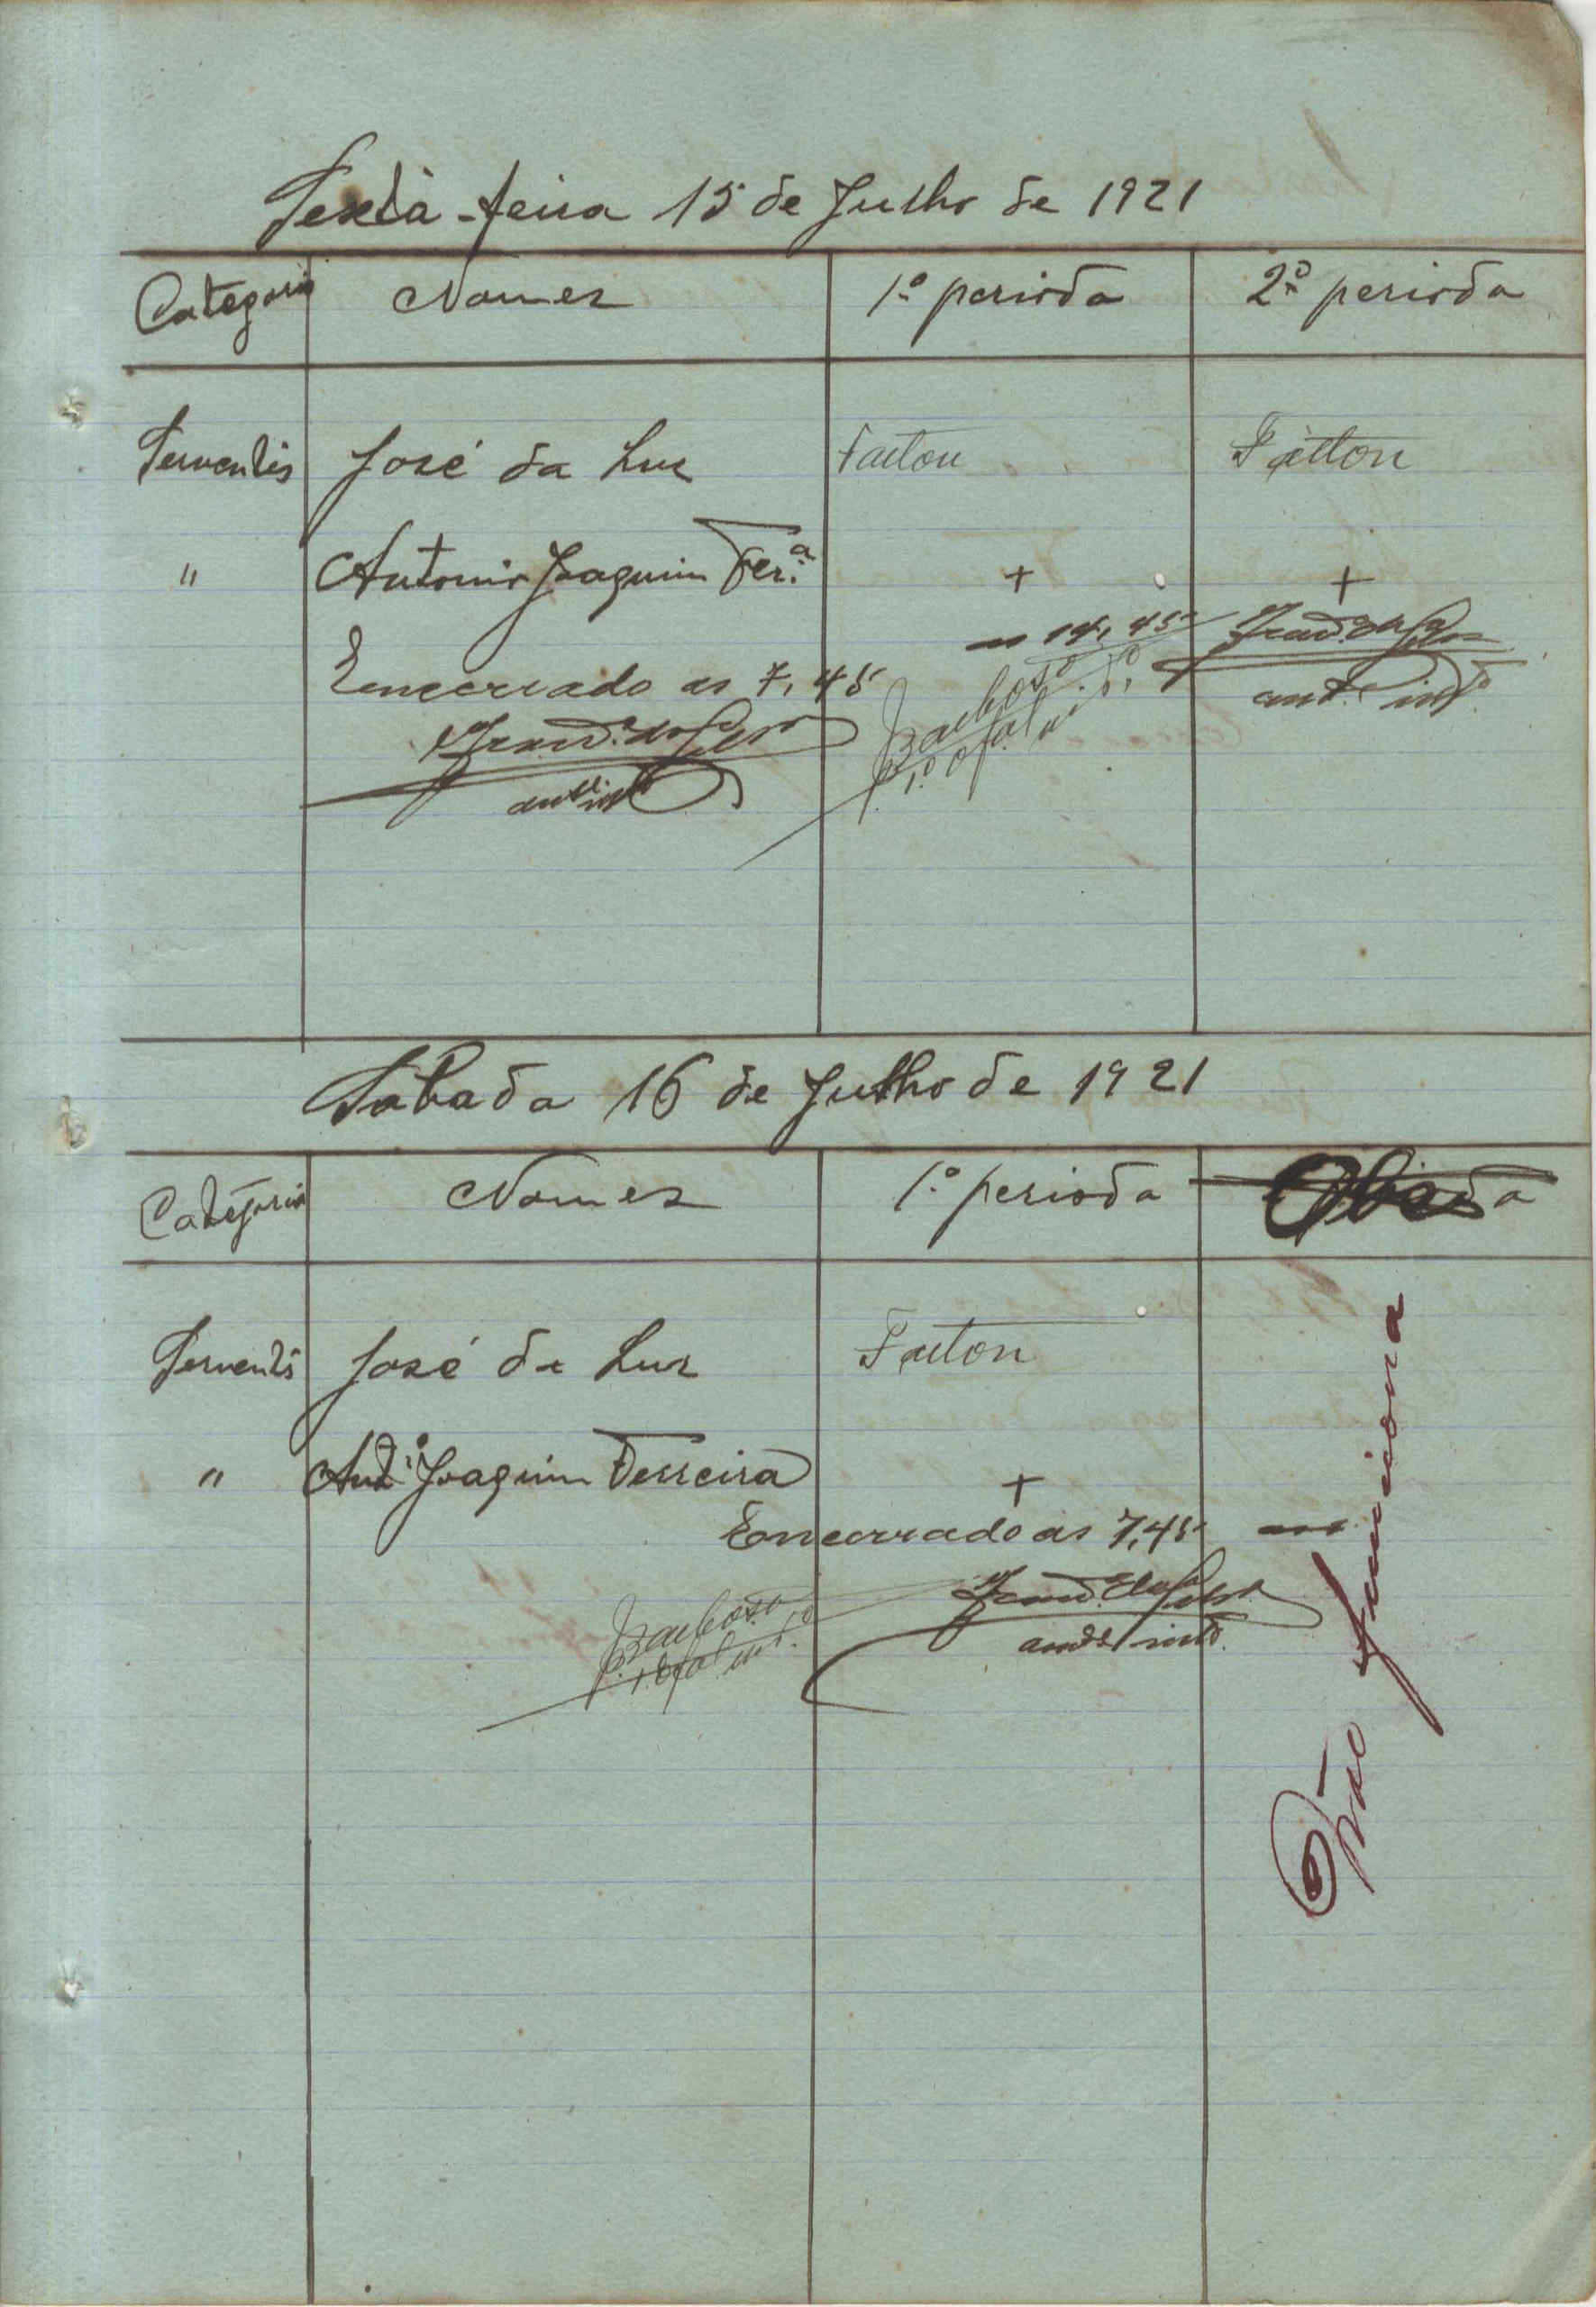 Sexta-feira 15 de Julho de 1921
Categoria Nomes 1º periodo 2º periodo
Serventes José da Luz Faltou Faltou
" Antonio Joaquim Ferª + +
Encerrado as 7,45 as 14,45
Barbosa
1º ofal intº
Sabado 16 de Julho de 1921
Categoria Nomes 1º periodo
Serventes José da Luz Faltou
" Antº Joaquim Ferreira +
Encerrado as 7,45
Barbosa
1º ofal intº
Não funciona